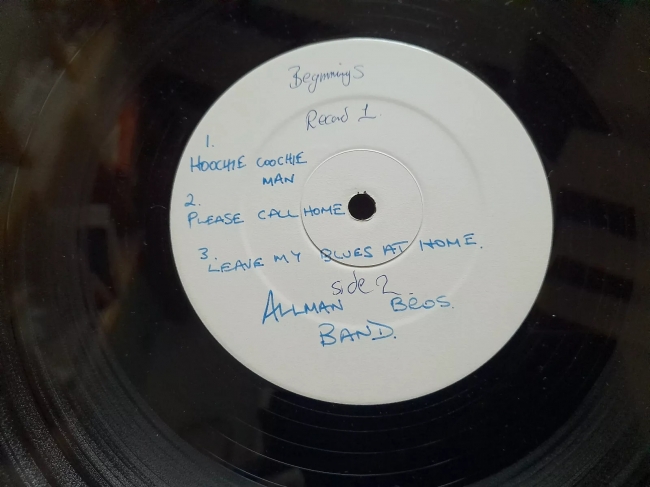 Beginnings
Record 1.
1.
HOOCHIE COOCHIE
MAN
2.
PLEASE CALL HOME
3. LEAVE MY BLUES AT HOME.
side 2
ALLMAN BROS.
BAND.